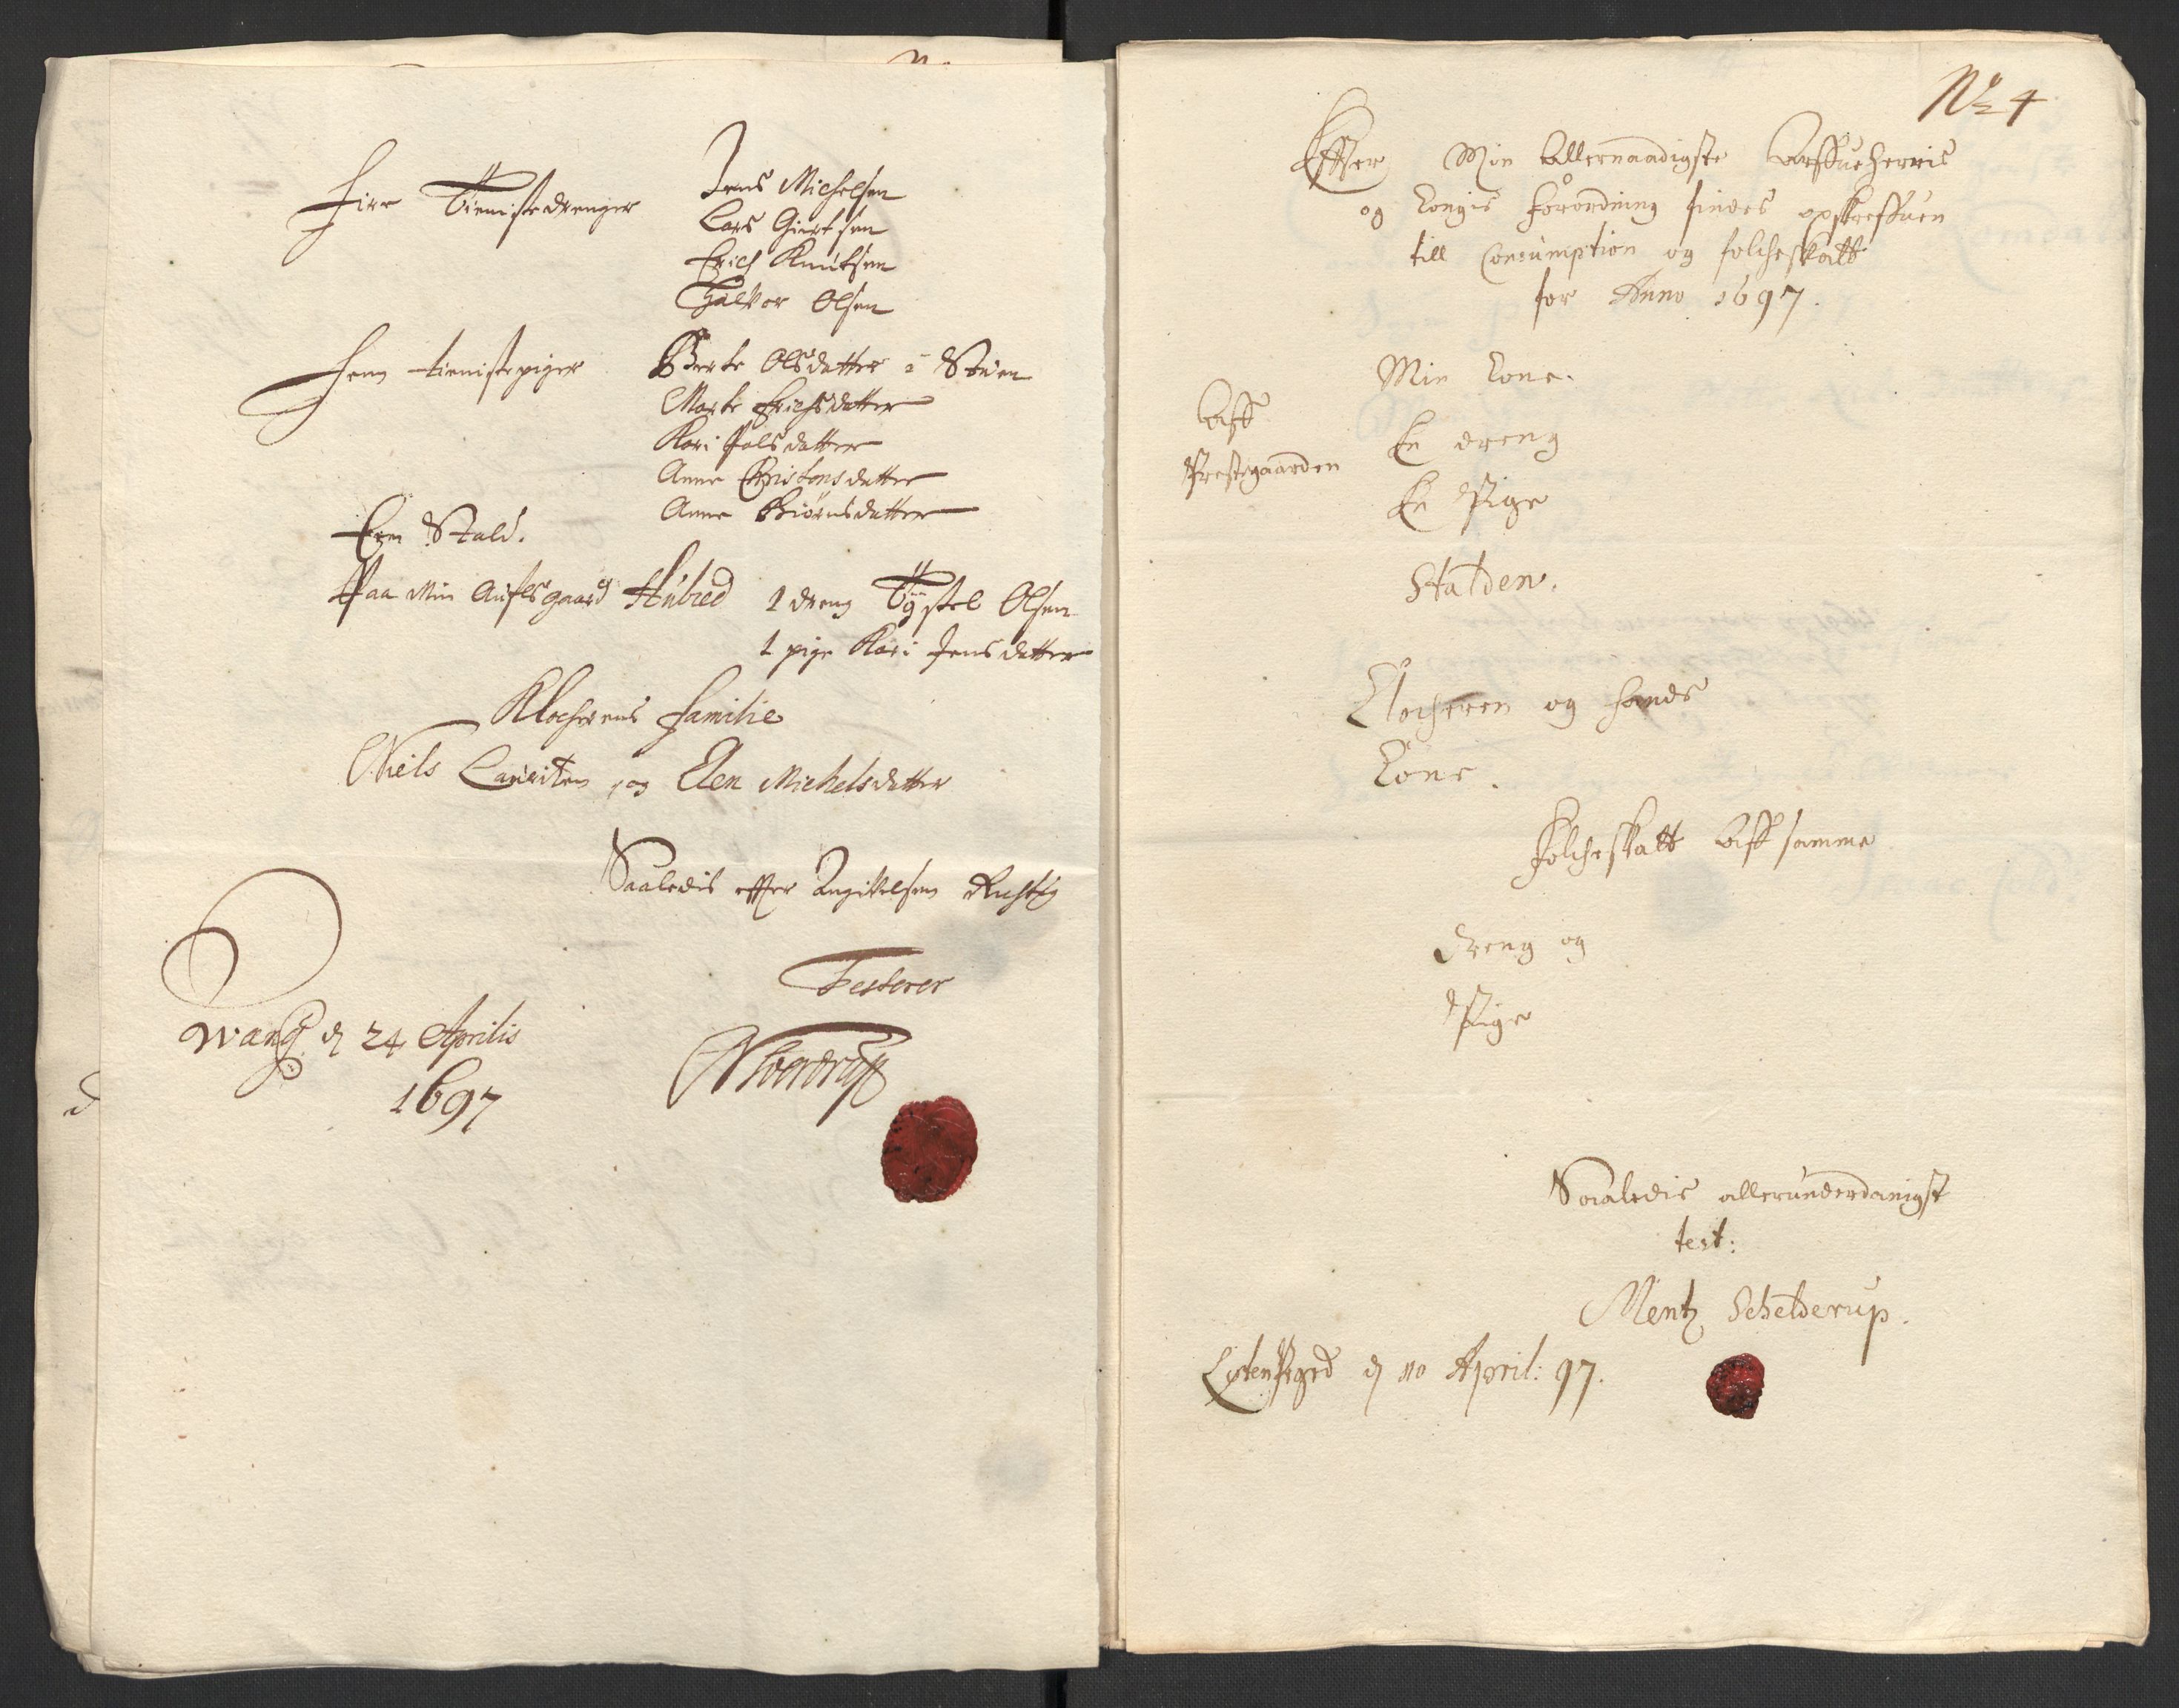 Fire Tienistedrenger
Jens Michelsen
Lars Giertsen
Erich Knutsen
Halvor Olsen
Fem tienistepiger
Berte Olsdatter i Stuen
Marte Erichsdatter
Kari Polsdatter
Anne Christensdatter
Anne Biørnsdatter
Een Stald.
Paa Min Aufls gaard Hubred 1 dreng Tystel Olsen
1 pige Kari Jensdatter
Klocherens familie
Niels Lauritsen, og Elen Michelsdatter
Saaledis effter Angivelsen Rigtig
Testerer
Wang d 24 Aprilis
1697
No 4
Effter Min Allernaadigste Arffueherris
og Kongis forordning findes opskreffuen
till Consumption og folcheskatt
for Anno 1697.
Min Kone.
Aff
Prestegaarden
En dreng
En Pige
Stalden.
Klocheren og hands
Kone.
Folcheskatt Aff samme
dreng og
Pige
Saaledis allerunderdanigst
test:
Mentz Schelderup.
Løten Prgrd d 10 April: 97.